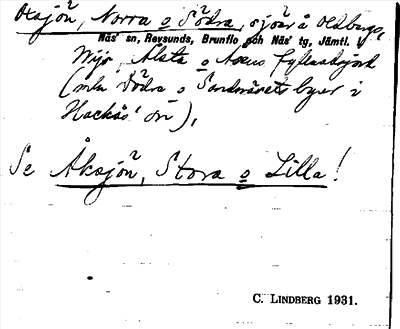 Oxsjön, Norra o Södra, sjöar å Oldbergs,
Näs sn, Revsunds, Brunflo och Näs tg, Jämtl. l
Wije, Alsta o Acens
(mln Södra o Sandnäsets byar i
Hackås' sn),
Se Åksjön, Stora o Lilla!
C. LINDBERG 1931.